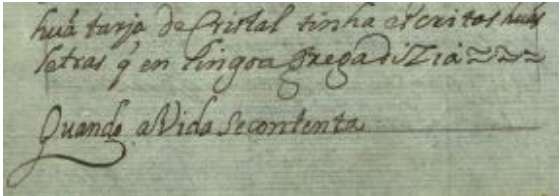 huã tarja de Cristal tinha escritas huãs
letras q̃ en lingoa grega diZia ≈≈≈
Quando a Vida Se contenta